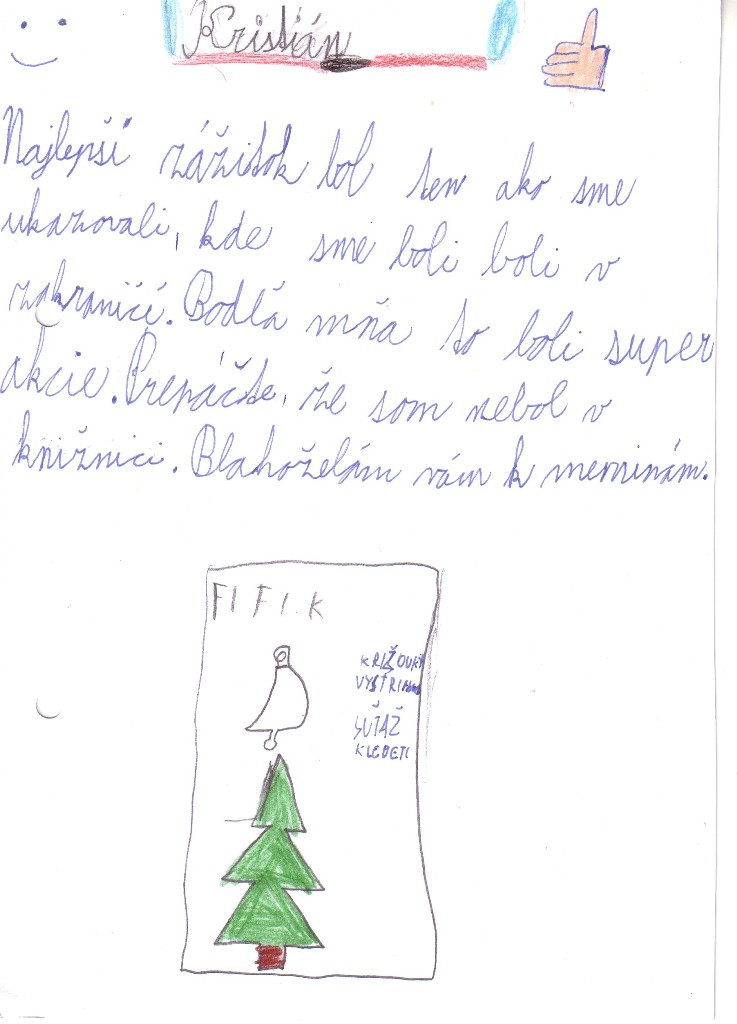 Kristián
Najlepší zážitok bol ten ako sme
ukazovali, kde sme boli boli v
zahraničí. Podľa mňa to boli super
akcie. Prepáčte, že som nebol v
knižnici. Blahoželám vám k meninám.
FIFIK
KRIŽOVKY
SÚŤAŽ
KLEBETI